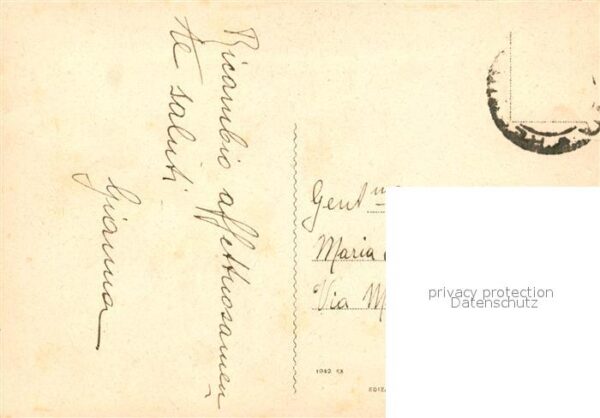 Ricambio affettuosamen
te saluti
Gianna
Gent ma
Maria
Via M
privacy protection
Datenschutz
1942